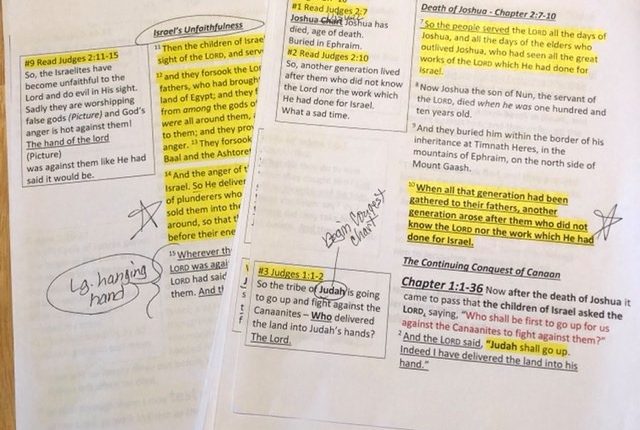 Israel's Unfaithfulness
#9 Read Judges 2:11-15
So, the Israelites have
become unfaithful to the
Lord and do evil in His sight.
Sadly they are worshipping
false gods (Picture) and God's
anger is hot against them!
The hand of the lord
(Picture)
was against them like He had
said it would be.
11 Then the children of Israe
sight of the LORD, and serv
12 and they forsook the Lo
fathers, who had brough
land of Egypt; and they f
from among the gods o
were all around them, a
to them; and they pro
anger. 13 They forsook
Baal and the Ashtoret
14 And the anger of the
Israel. So He deliver
of plunderers who
sold them into the
around, so that
before their ene
15 Wherever th
LORD was agai
LORD had said
them. And th
Lg. hanging
hand
#1 Read Judges 2:7
Joshua Chart Joshua has
died, age of death.
Buried in Ephraim.
#2 Read Judges 2:10
So, another generation lived
after them who did not know
the Lord nor the work which
He had done for Israel.
What a sad time.
Begin Conquest
Chart
#3 Judges 1:1-2
So the tribe of Judah is going
to go up and fight against the
Canaanites – Who delivered
the land into Judah's hands?
The Lord.
Death of Joshua - Chapter 2:7-10
7 So the people served the LORD all the days of
Joshua, and all the days of the elders who
outlived Joshua, who had seen all the great
works of the LORD which He had done for
Israel.
8 Now Joshua the son of Nun, the servant of
the LORD, died when he was one hundred and
ten years old.
9 And they buried him within the border of his
inheritance at Timnath Heres, in the
mountains of Ephraim, on the north side of
Mount Gaash.
10 When all that generation had been
gathered to their fathers, another
generation arose after them who did not
know the LORD nor the work which He had
done for Israel.
The Continuing Conquest of Canaan
Chapter 1:1-36 Now after the death of Joshua it
came to pass that the children of Israel asked the
LORD, saying, "Who shall be first to go up for us
against the Canaanites to fight against them?"
2 And the LORD said, "Judah shall go up.
Indeed I have delivered the land into his
hand."